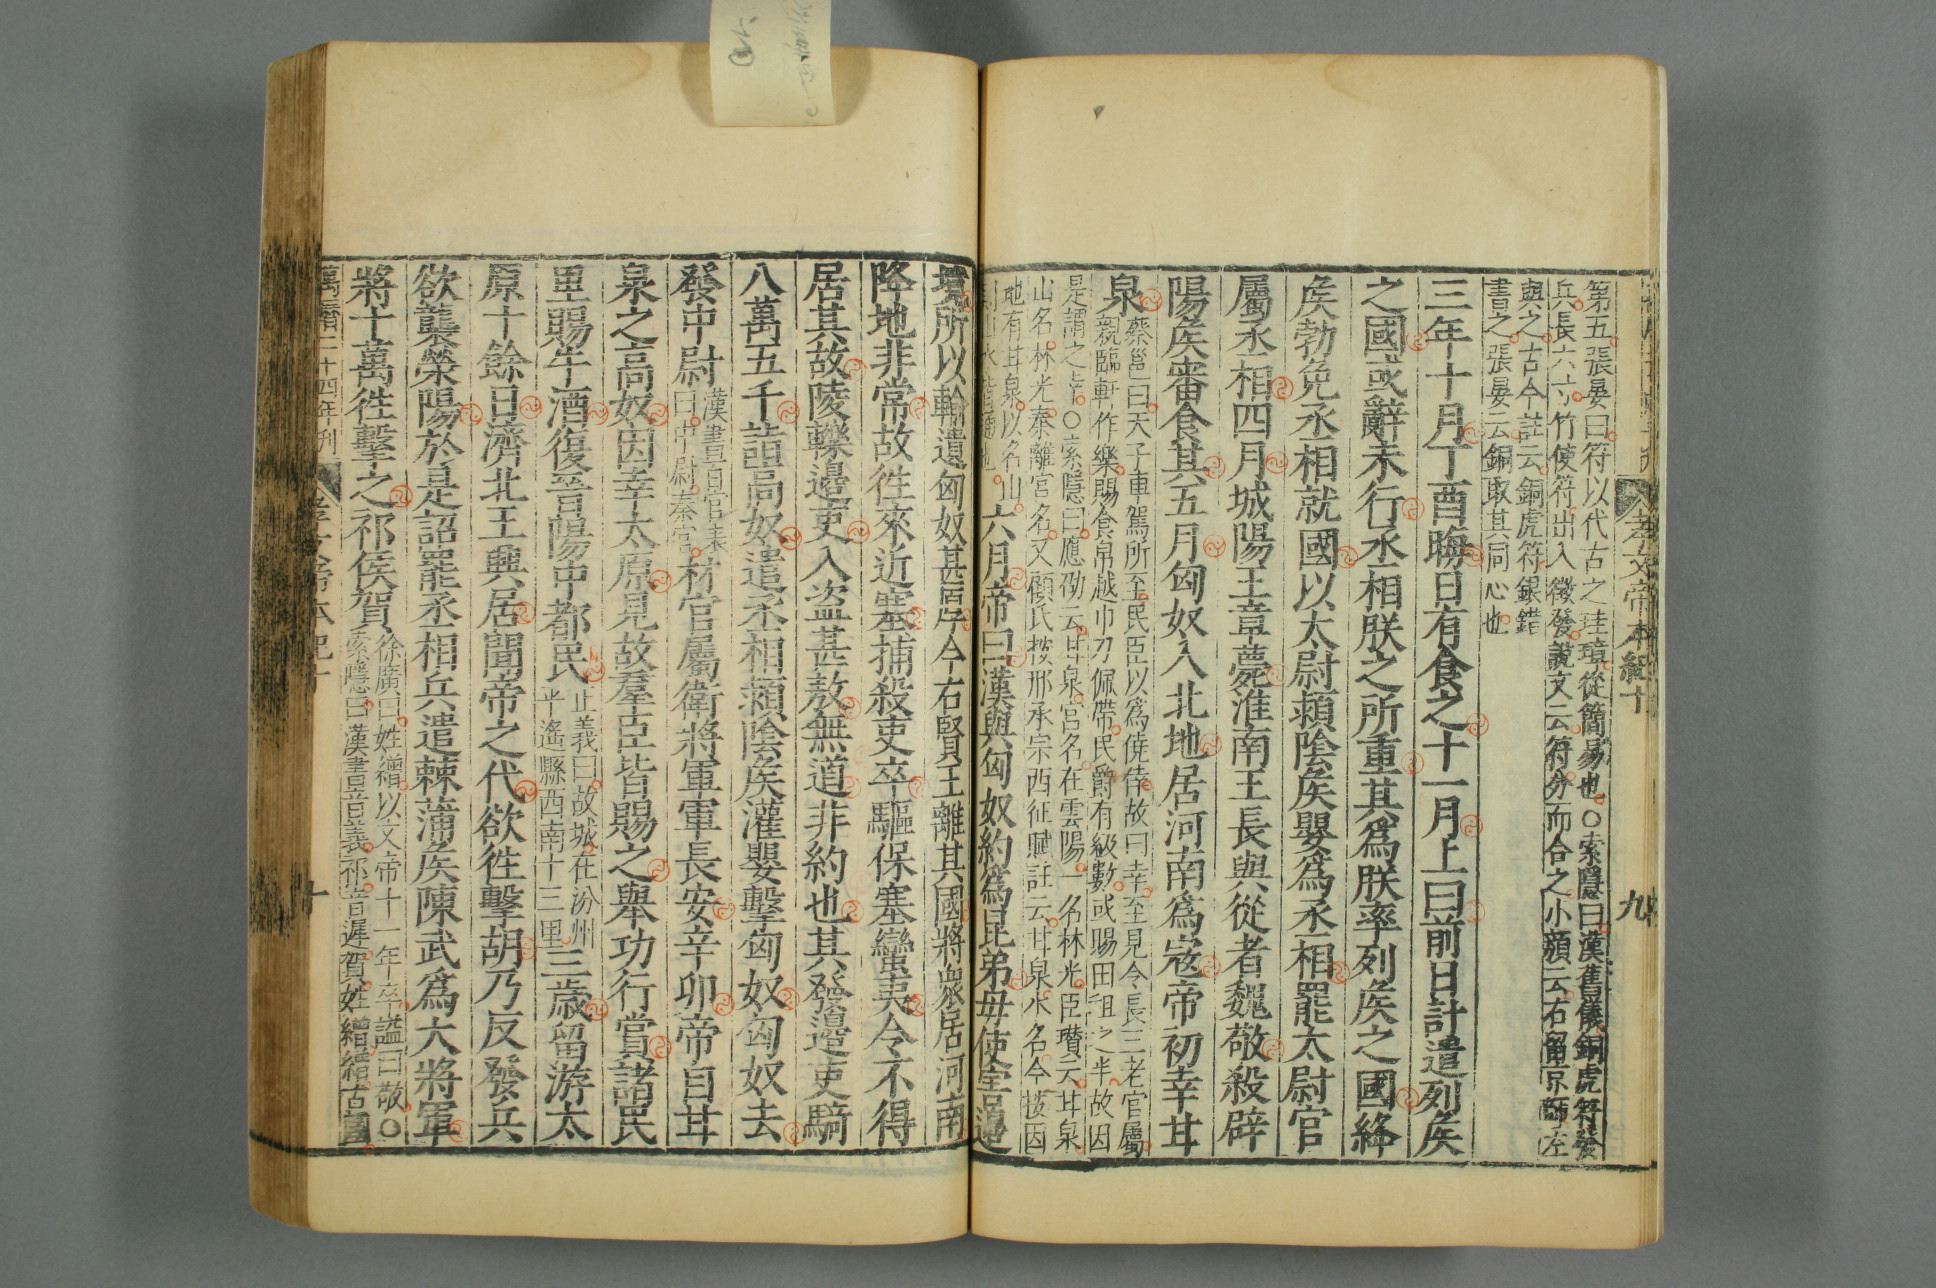 孝文帝本紀十
九
第五張晏曰符以代古之珪璋從簡易也○索隱曰漢舊儀銅虎符發
兵長六寸竹使符出入徵發說文云符分而合之小顏云右留京師左
與之古今註云銅虎符銀錯
書之張晏云銅取其同心也
三年十月丁酉晦日有食之十一月上曰前日計遣列矦
之國或辭未行丞相朕之所重其爲朕率列矦之國絳
矦勃免丞相就國以太尉頴陰矦嬰爲丞相罷太尉官
屬丞相四月城陽王章薨淮南王長與從者魏敬殺辟
陽矦審食其五月匈奴入北地居河南爲寇帝初幸甘
泉
蔡邕曰天子車駕所至民臣以爲僥倖故曰幸至見令長三老官屬
親臨軒作樂賜食帛越巾刀佩帶民爵有級數或賜田租之半故因
是謂之幸○索隱曰應劭云甘泉宮名在雲陽一名林光臣瓚云甘泉
山名林光秦離宮名又顧氏按邢承宗西征賦註云甘泉水名今按因
地有甘泉以名山
六月帝曰漢與匈奴約爲昆弟毋使害邊
境所以輸遺匈奴甚厚今右賢王離其國將衆居河南
降地非常故徃來近塞捕殺吏卒驅保塞蠻夷令不得
居其故陵轢邉吏入盗甚敖無道非約也其發邉吏騎
八萬五千詣高奴遣丞相頴陰矦灌嬰擊匈奴匈奴去
發中尉
漢書百官表
曰中尉秦官
材官屬衛將軍軍長安辛卯帝自甘
泉之高奴因幸太原見故羣臣皆賜之舉功行賞諸民
里賜牛酒復晉陽中都民
正義曰故城在汾州
平遙縣西南十三里
三歲留游太
原十餘日濟北王興居聞帝之代欲徃擊胡乃反發兵
欲襲滎陽於是詔罷丞相兵遣棘蒲矦陳武爲大將軍
將十萬徃擊之祁侯賀
徐廣曰姓繒以文帝十一年卒謚曰敬○
索隱曰漢書音義祁音遲賀姓繒繒古國
萬曆二十四年刊
孝文帝本紀十
十